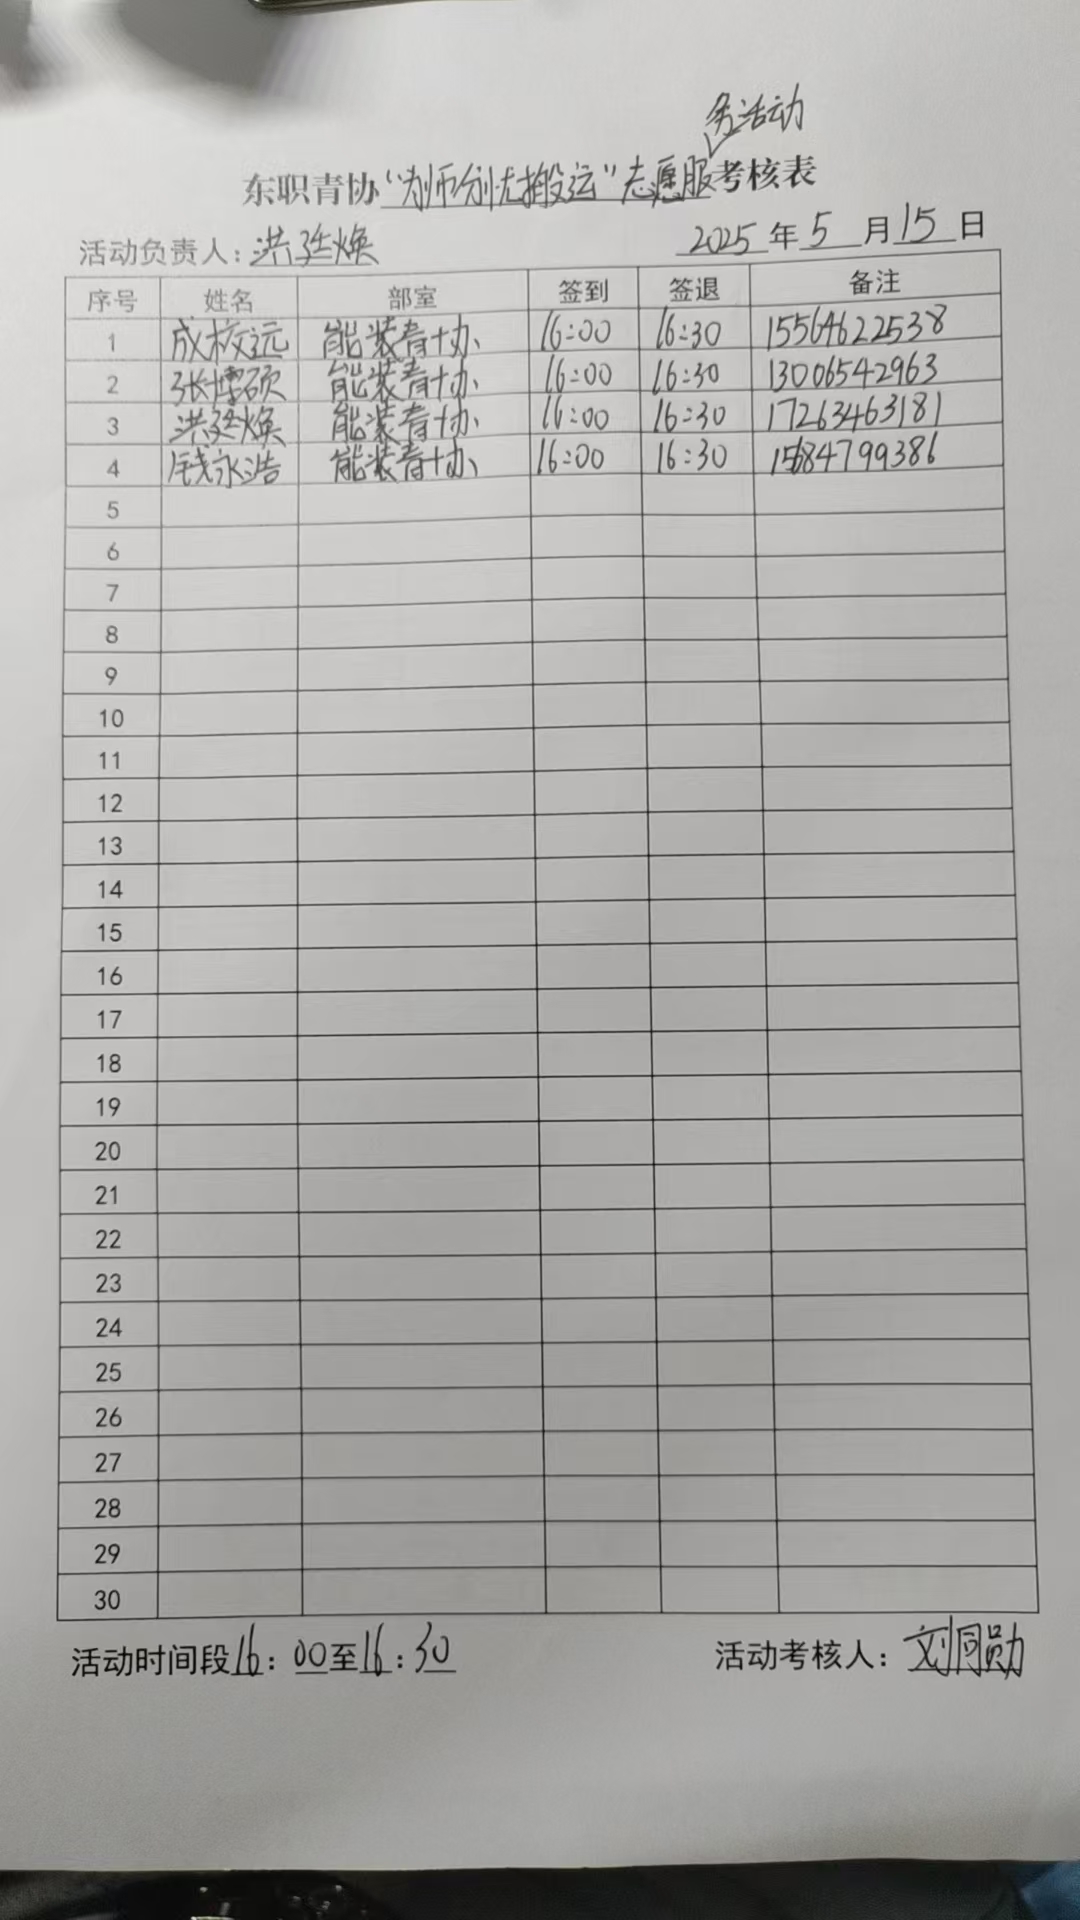 务活动
东职青协“为师分忧搬运”志愿服考核表
活动负责人：洪廷焕 2025年5月15日
序号 姓名 部室 签到 签退 备注
1 成校远 能装青协 16:00 16:30 15564622538
2 张博硕 能装青协 16:00 16:30 13006542963
3 洪廷焕 能装青协 16:00 16:30 17263463181
4 钱永浩 能装青协 16:00 16:30 15684799386
5
6
7
8
9
10
11
12
13
14
15
16
17
18
19
20
21
22
23
24
25
26
27
28
29
30
活动时间段16：00至16：30 活动考核人：刘同勋